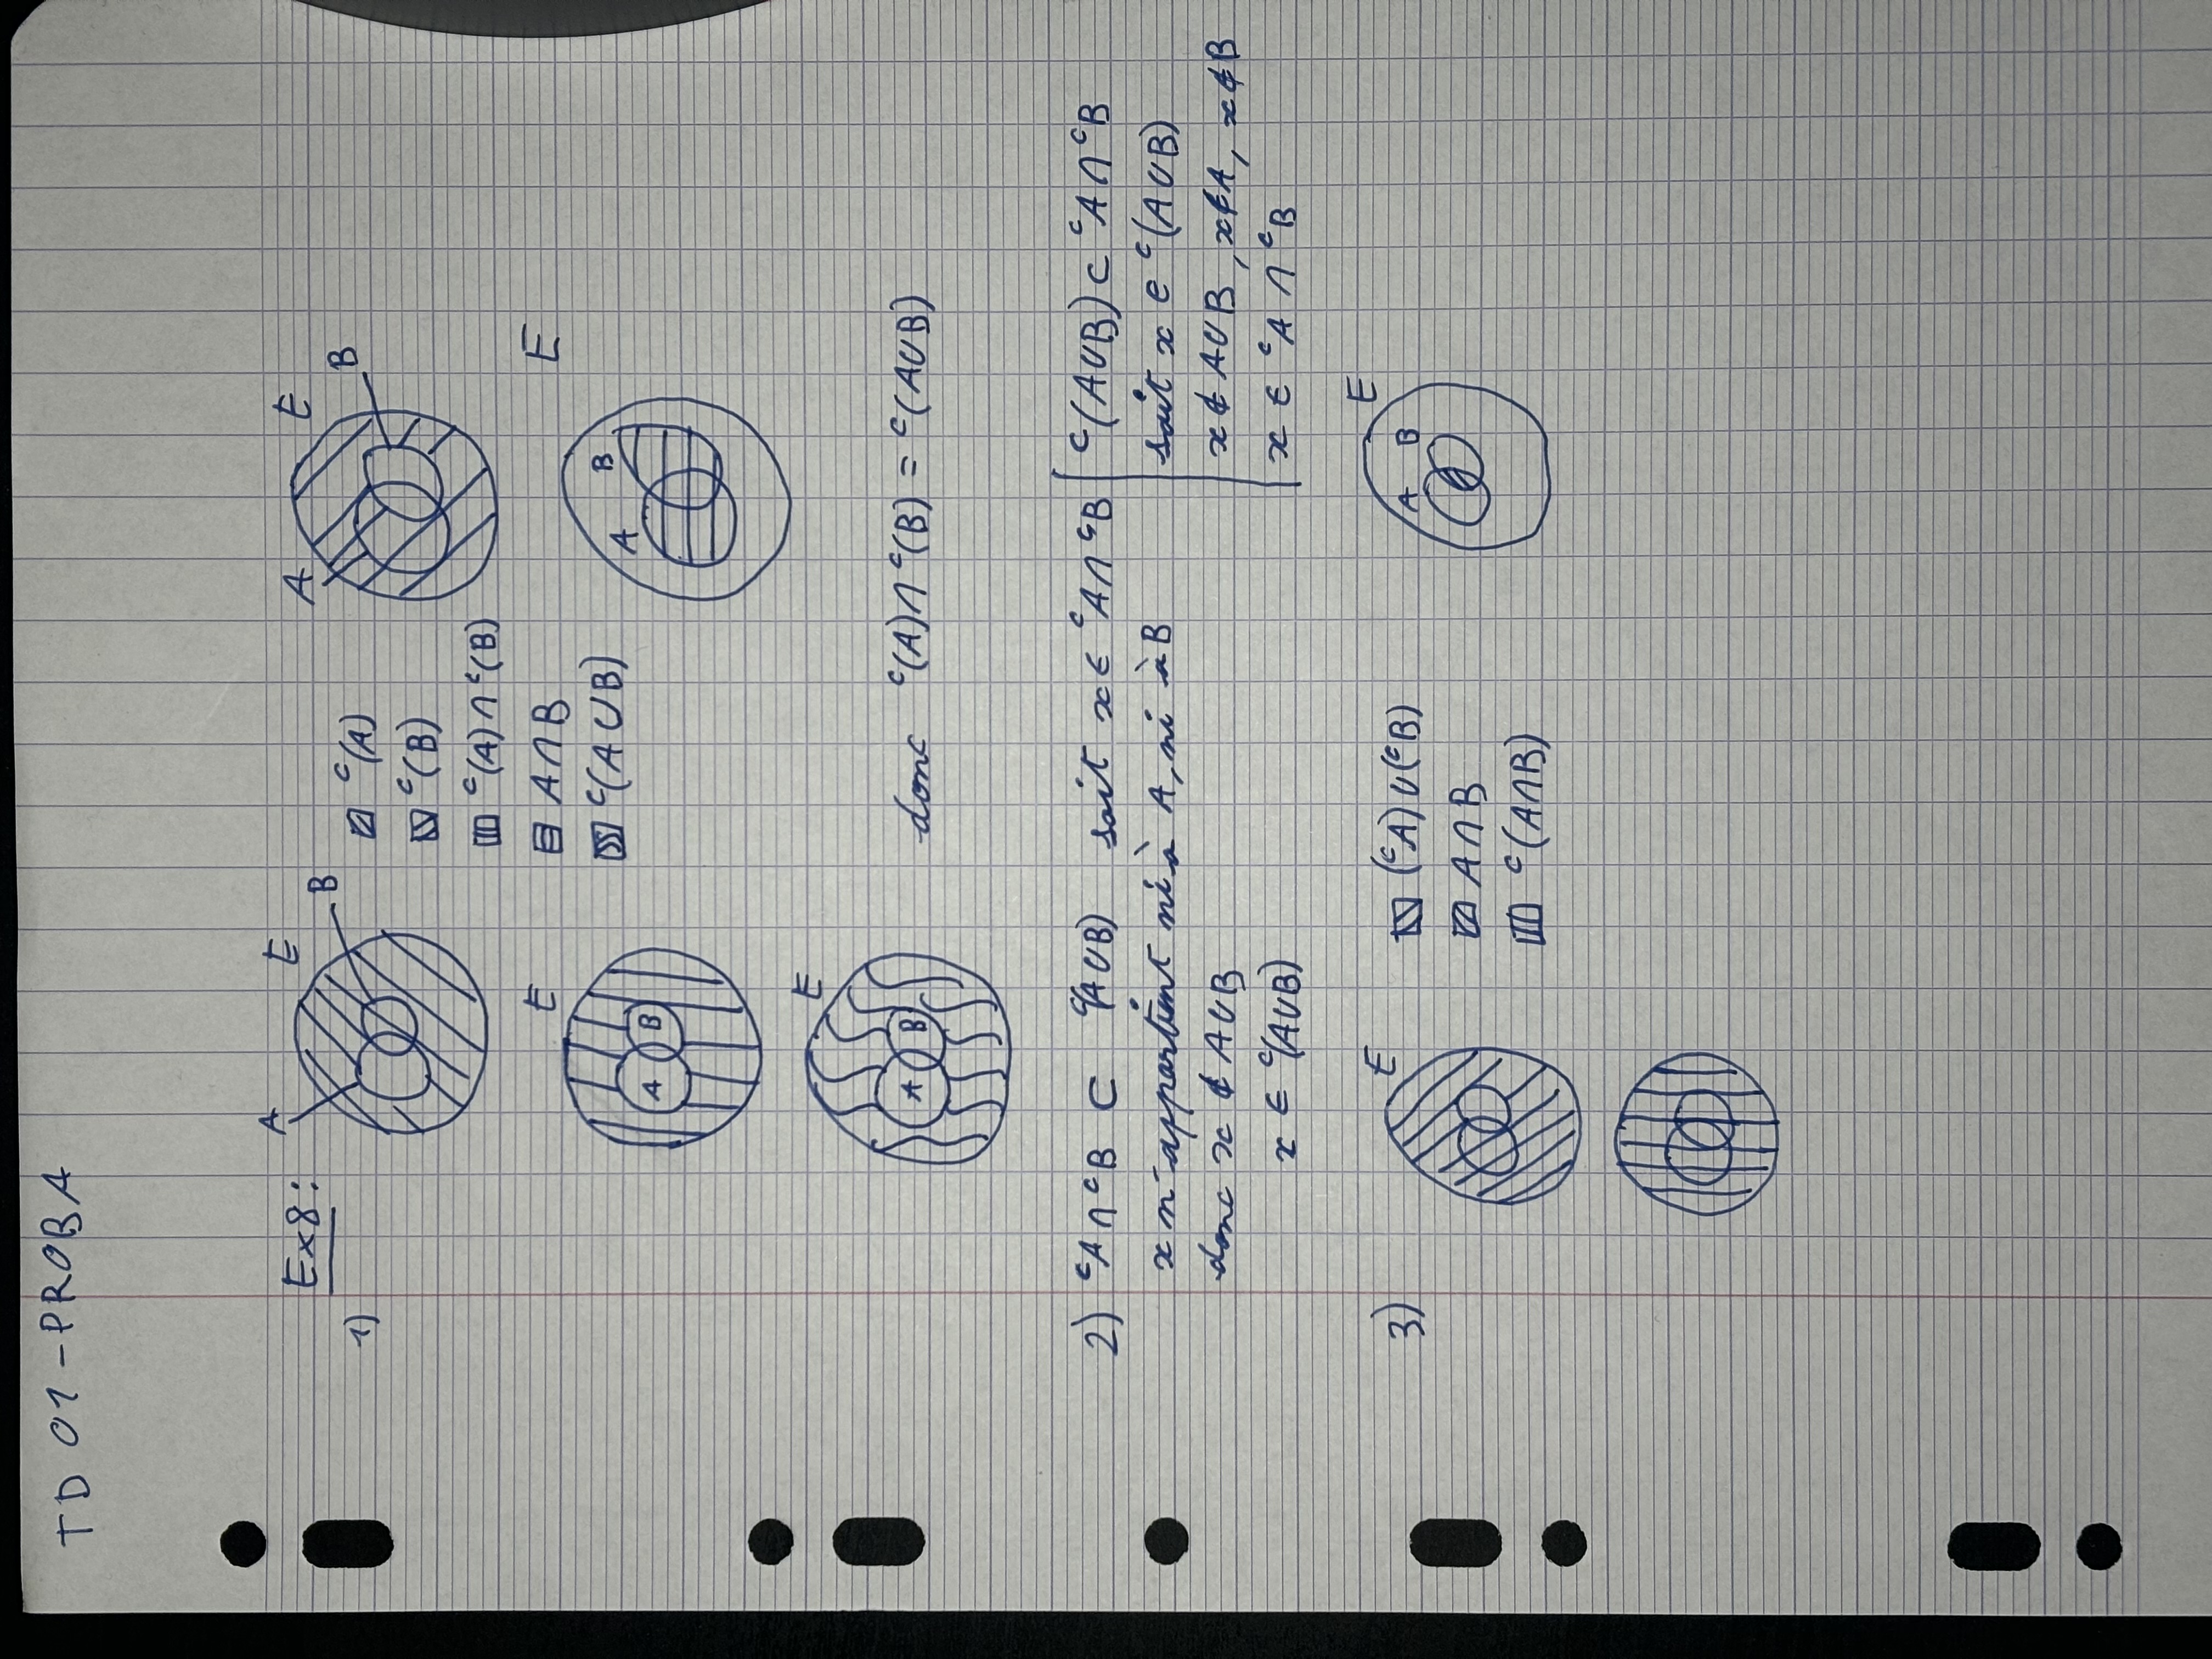 TD 01 - PROBA
Ex8 :
1)
A E
B
ᶜ(A)
ᶜ(B)
ᶜ(A) ∩ ᶜ(B)
A ∩ B
ᶜ(A ∪ B)
A E
B
E
A B
E
A B
E
A B
donc ᶜ(A) ∩ ᶜ(B) = ᶜ(A ∪ B)
2) ᶜA ∩ ᶜB ⊂ ᶜ(A ∪ B) soit x ∈ ᶜA ∩ ᶜB
x n'appartient ni à A, ni à B
donc x ∉ A ∪ B
x ∈ ᶜ(A ∪ B)
ᶜ(A ∪ B) ⊂ ᶜA ∩ ᶜB
soit x ∈ ᶜ(A ∪ B)
x ∉ A ∪ B, x ∉ A, x ∉ B
x ∈ ᶜA ∩ ᶜB
3)
E
(ᶜA) ∪ (ᶜB)
A ∩ B
ᶜ(A ∩ B)
E
A B